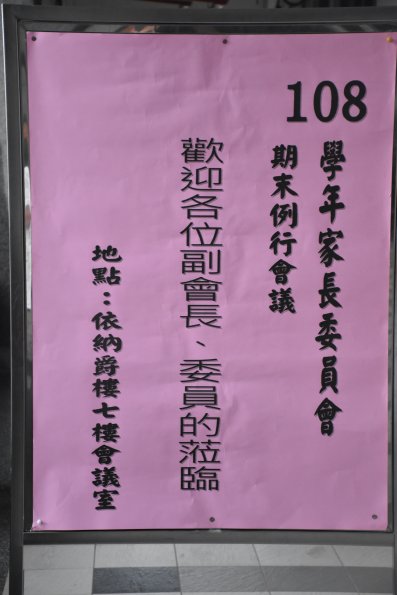 108
學年家長委員會
期末例行會議
歡迎各位副會長、委員的蒞臨
地點：依納爵樓七樓會議室